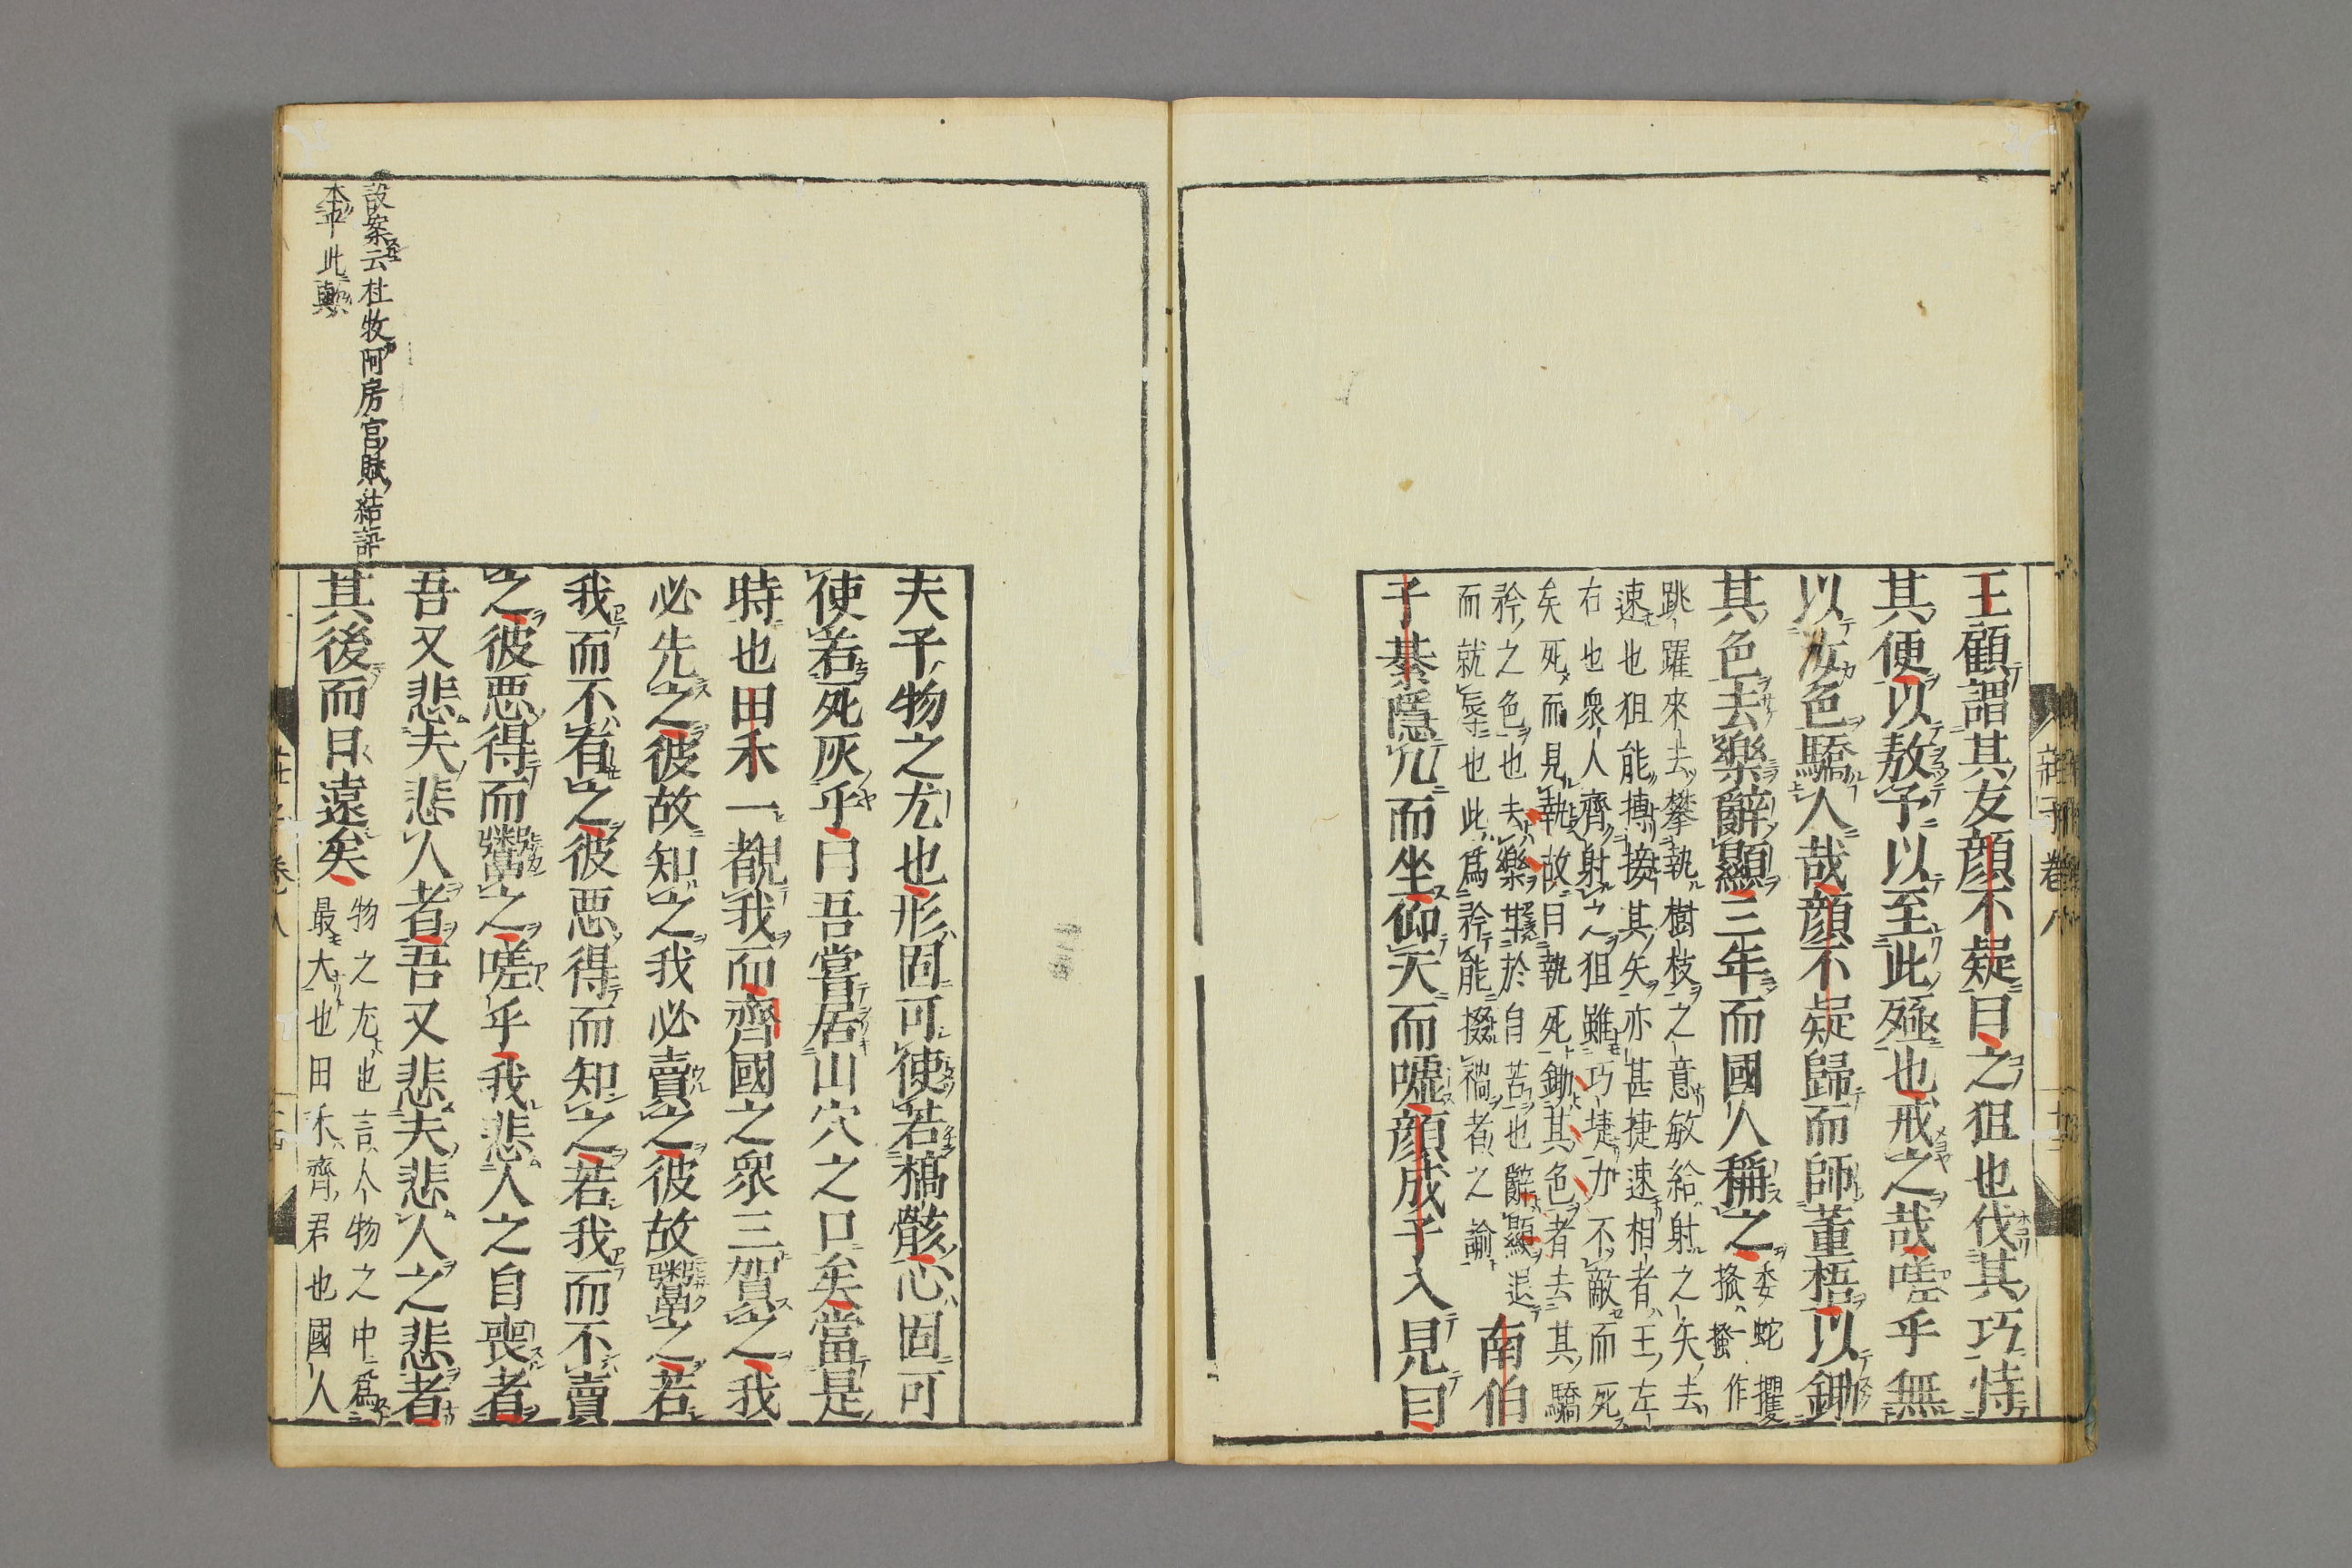 王顧謂其友顔不疑曰之狙也伐其巧恃
其便以敖予以至此殛也戒之哉嗟乎無
以汝色驕人哉顔不疑歸而師董梧以鋤
其色去樂辭顯三年而國人稱之委蛇攫
搔一作
跳躍來去攀執樹枝之意敏給射之矢去
速也狙能摶接其矢亦甚捷速相者王左
右也衆人齊射之狙雖巧捷力不敵而死
矣死而見執故曰執死鋤其色者去其驕
矜之色也去樂於自苦也辭顯退
而就辱也此為矜能掇禍者之諭
南伯
子綦隱几而坐仰天而噓顔成子入見曰
夫子物之尤也形固可使若槁骸心固可
使若死灰乎曰吾嘗居山穴之口矣當是
時也田禾一覩我而齊國之衆三賀之我
必先之彼故知之我必賣之彼故鬻之若
我而不有之彼惡得而知之若我而不賣
之彼惡得而鬻之嗟乎我悲人之自喪者
吾又悲夫悲人者吾又悲夫悲人之悲者
其後而日遠矣
物之尤也言人物之中為
最大也田禾齊君也國人
設案云杜牧阿房宮賦結語
本乎此歟
莊子卷八